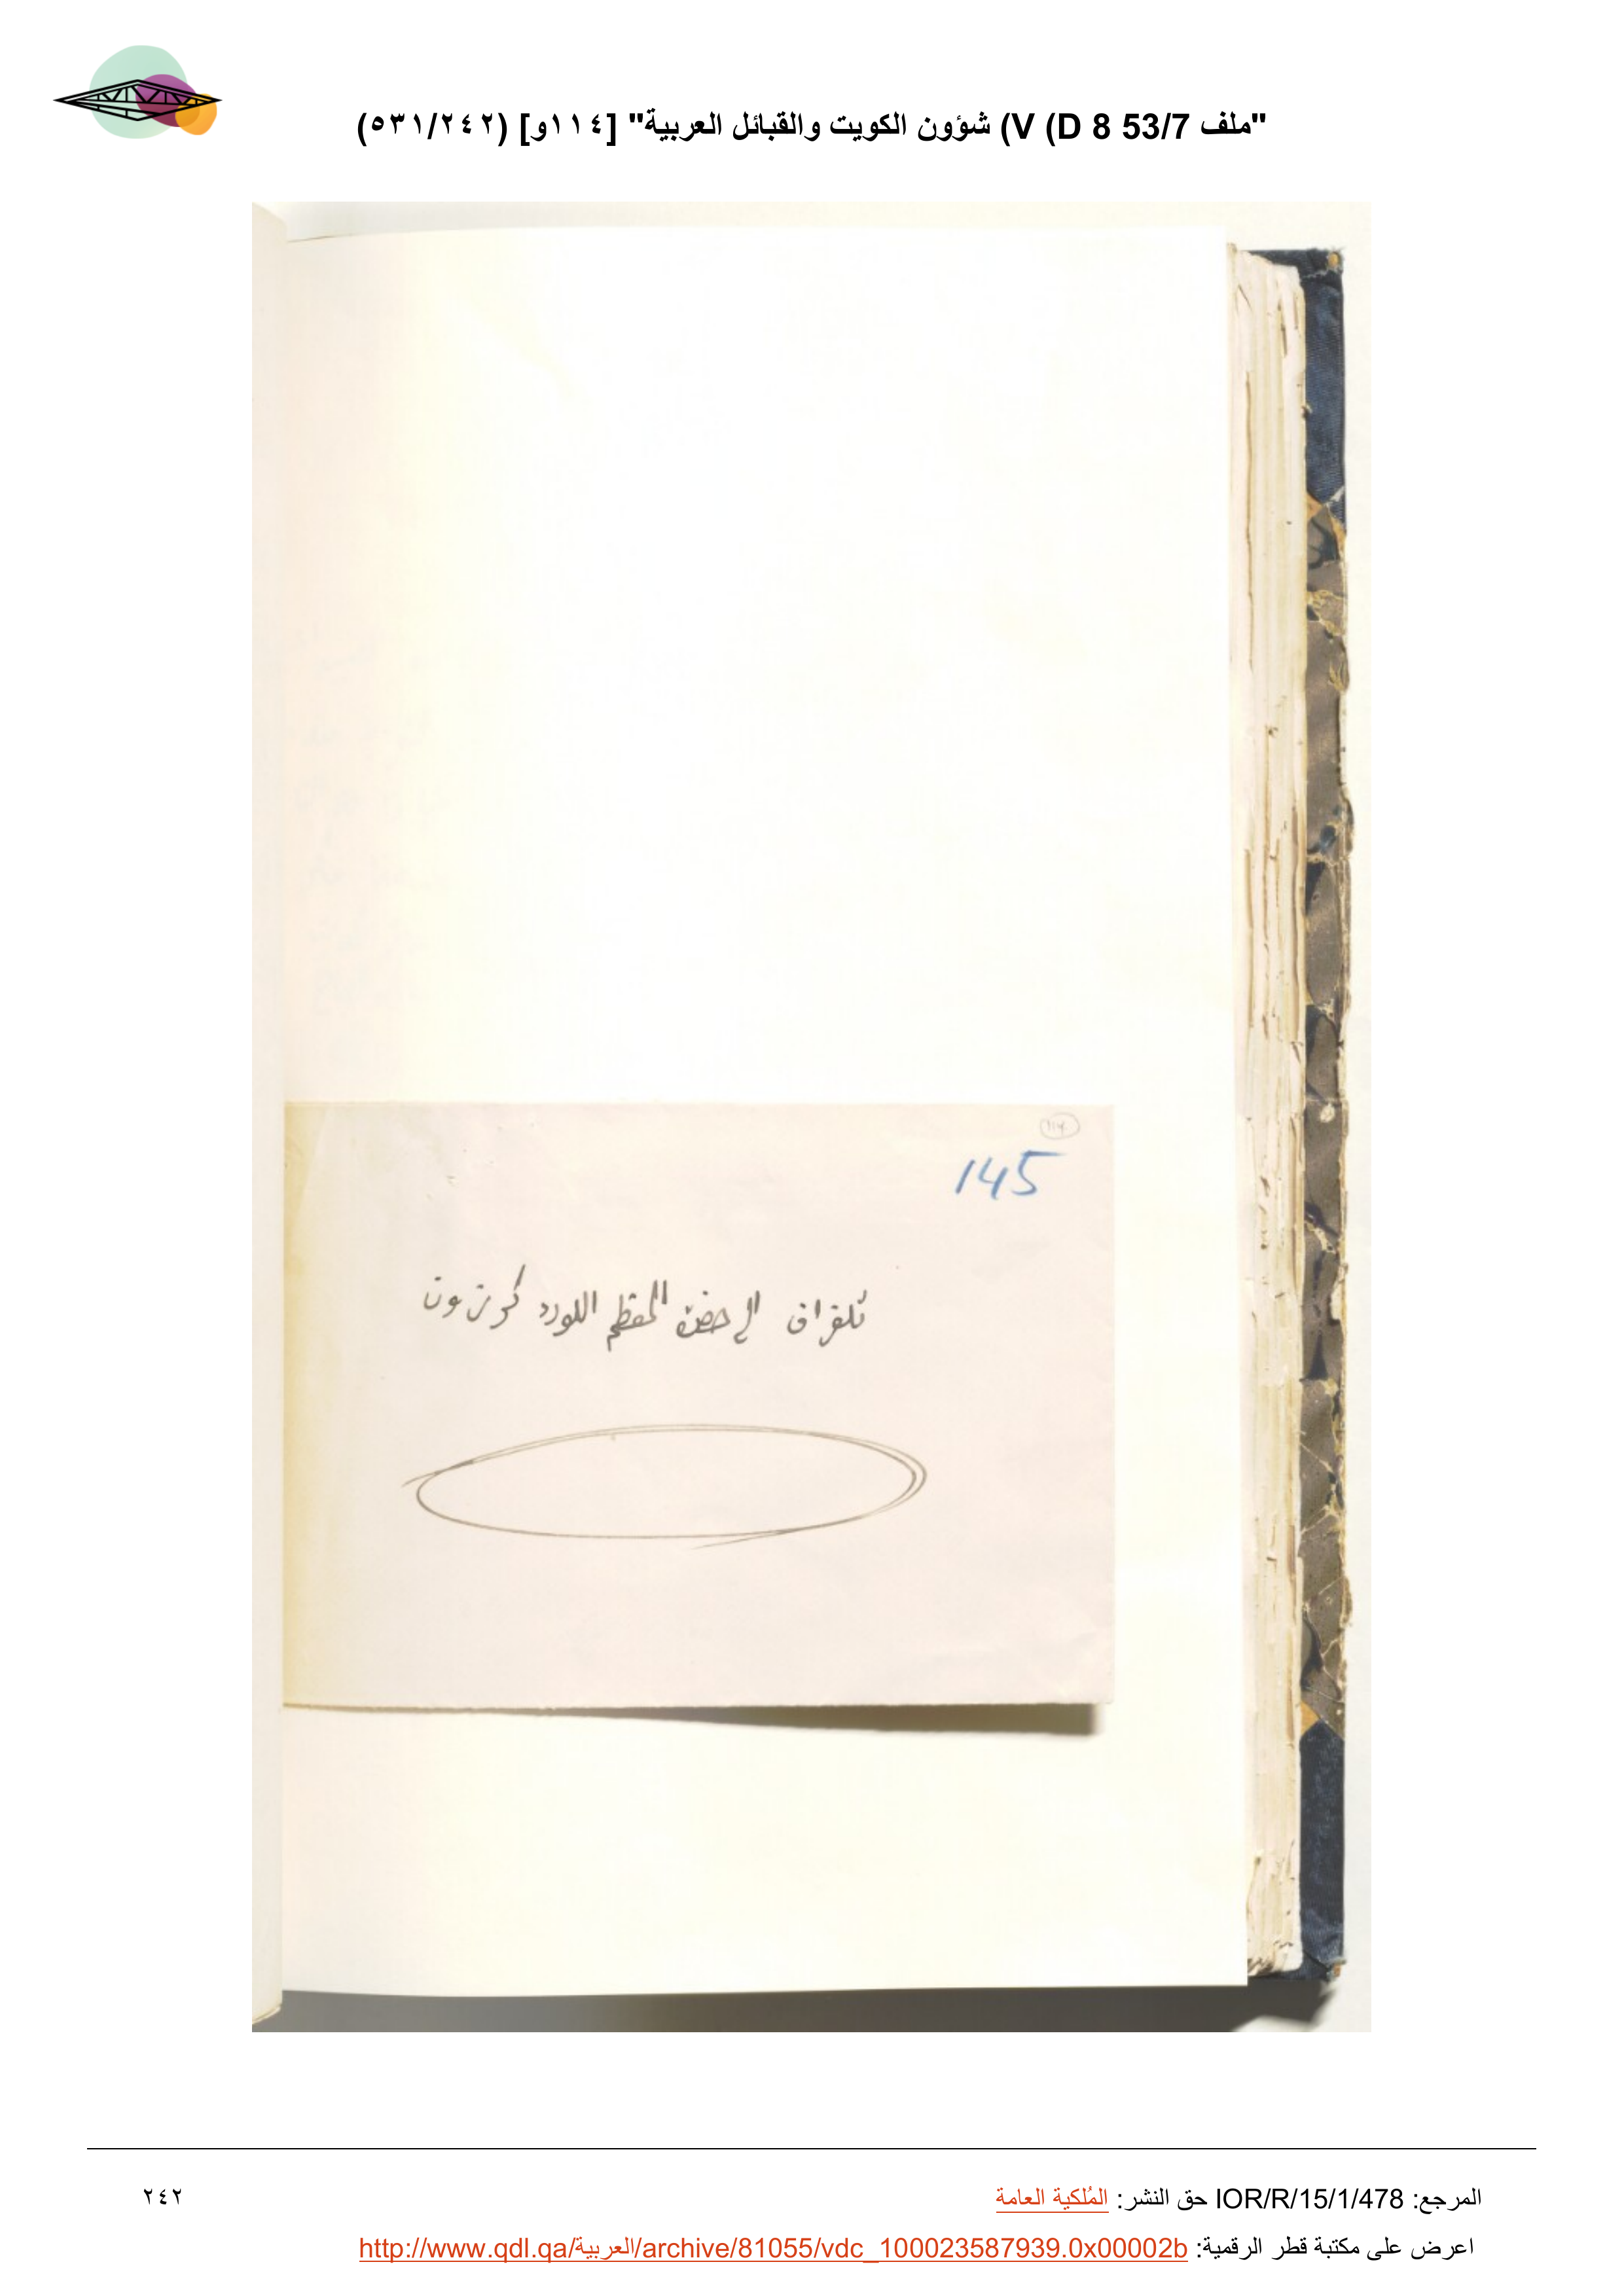 "ملف 53/7 D 8) V) شؤون الكويت والقبائل العربية" [١١٤و] (٥٣١/٢٤٢)
114
145
تلغراف الى حضرة المعظم اللورد كرزون
المرجع: IOR/R/15/1/478 حق النشر: المُلكية العامة
٢٤٢
اعرض على مكتبة قطر الرقمية: http://www.qdl.qa/العربية/archive/81055/vdc_100023587939.0x00002b